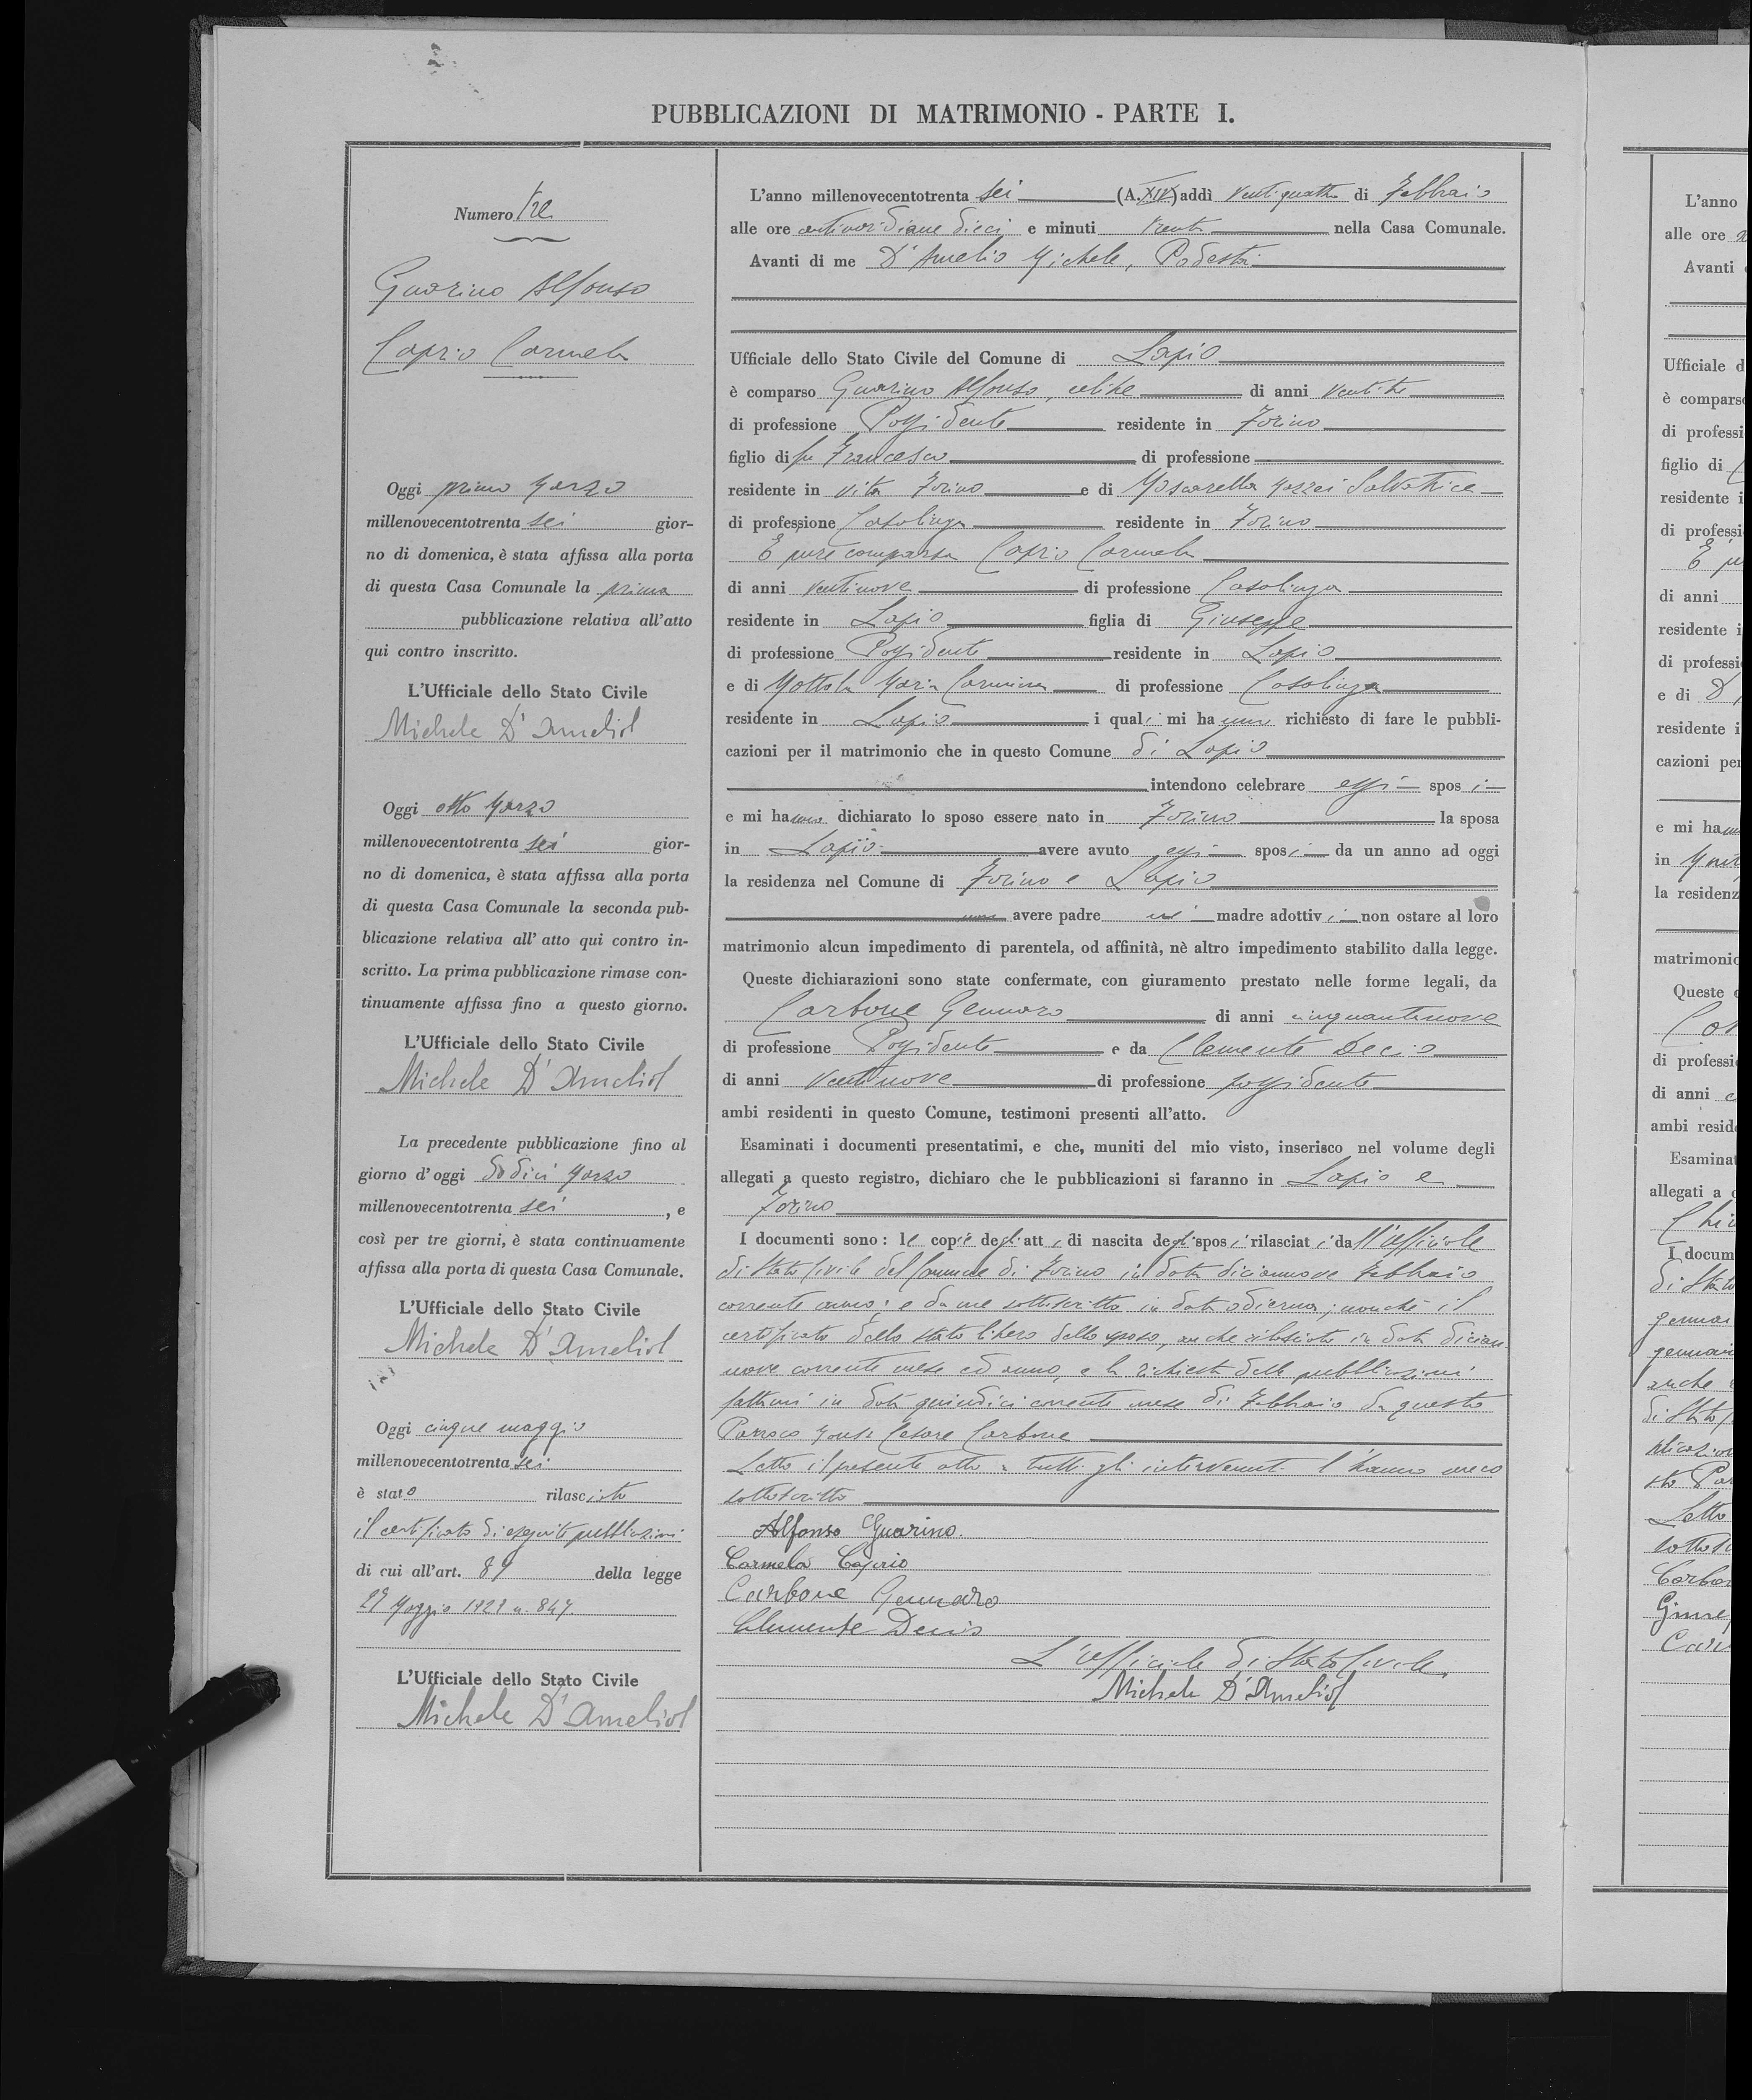 PUBBLICAZIONI DI MATRIMONIO - PARTE I.
Numero tre
Guarino Alfonso
Caprio Carmela
Oggi primo Marzo
millenovecentotrenta sei gior-
no di domenica, è stata affissa alla porta
di questa Casa Comunale la prima
pubblicazione relativa all'atto
qui contro inscritto.
L'Ufficiale dello Stato Civile
Michele D'Amelio
Oggi otto Marzo
millenovecentotrenta sei gior-
no di domenica, è stata affissa alla porta
di questa Casa Comunale la seconda pub-
blicazione relativa all' atto qui contro in-
scritto. La prima pubblicazione rimase con-
tinuamente affissa fino a questo giorno.
L'Ufficiale dello Stato Civile
Michele D'Amelio
La precedente pubblicazione fino al
giorno d'oggi dodici Marzo
millenovecentotrenta sei, e
così per tre giorni, è stata continuamente
affissa alla porta di questa Casa Comunale.
L'Ufficiale dello Stato Civile
Michele D'Amelio
Oggi cinque maggio
millenovecentotrenta sei
è stato rilasciato
il certificato di eseguite pubblicazioni
di cui all'art. della legge
Maggio n. 847.
L'Ufficiale dello Stato Civile
Michele D'Amelio
L'anno millenovecentotrenta sei (A. XIV) addì ventiquattro di Febbraio
alle ore antimeridiane dieci e minuti trenta nella Casa Comunale.
Avanti di me D'Amelio Michele, Podestà
Ufficiale dello Stato Civile del Comune di Lapio
è comparso Guarino Alfonso, celibe di anni ventitre
di professione Possidente residente in Forino
figlio di fu Francesco di professione
residente in vita Forino e di Salvatrice
di professione Casalinga residente in Forino
E pure comparsa Caprio Carmela
di anni ventinove di professione Casalinga
residente in Lapio figlia di Giuseppe
di professione Possidente residente in Lapio
e di Mottola Maria Carmina di professione Casalinga
residente in Lapio i quali mi hanno richiesto di fare le pubbli-
cazioni per il matrimonio che in questo Comune di Lapio
intendono celebrare essi sposi
e mi hanno dichiarato lo sposo essere nato in Forino la sposa
in Lapio avere avuto essi sposi da un anno ad oggi
la residenza nel Comune di Forino e Lapio
non avere padre nè madre adottivi non ostare al loro
matrimonio alcun impedimento di parentela, od affinità, nè altro impedimento stabilito dalla legge.
Queste dichiarazioni sono state confermate, con giuramento prestato nelle forme legali, da
Carbone Gennaro di anni cinquantanove
di professione Possidente e da Clemente Decio
di anni ventinove di professione possidente
ambi residenti in questo Comune, testimoni presenti all'atto.
Esaminati i documenti presentatimi, e che, muniti del mio visto, inserisco nel volume degli
allegati a questo registro, dichiaro che le pubblicazioni si faranno in Lapio e
Forino
I documenti sono: le copie degli atti di nascita degli sposi rilasciati dall'ufficiale
di Stato Civile del Comune di Forino in data diciannove Febbraio
corrente anno; e da me sottoscritto in data odierna; nonchè il
certificato dello stato libero dello sposo, anche rilasciato in data dician
nove corrente mese ed anno, e la richiesta delle pubblicazioni
fattami in data quindici corrente mese di Febbraio da questo
Parroco Mons. Cesare Carbone
Letto il presente atto a tutti gli intervenuti l'hanno meco
sottoscritto
Alfonso Guarino.
Carmela Caprio
Carbone Gennaro
Clemente Decio
L'ufficiale di Stato Civile
Michele D'Amelio
L'anno
alle ore
Avanti
Ufficiale d
è compars
di professi
figlio di
residente i
di professi
E pu
di anni
residente i
di professi
e di D
residente i
cazioni per
e mi ha
in
la residenz
matrimonio
Queste
di professi
di anni
ambi resid
Esaminat
allegati a
I docum
di Stato
gennai
gennai
anche
di Stato
Letto
Carbo